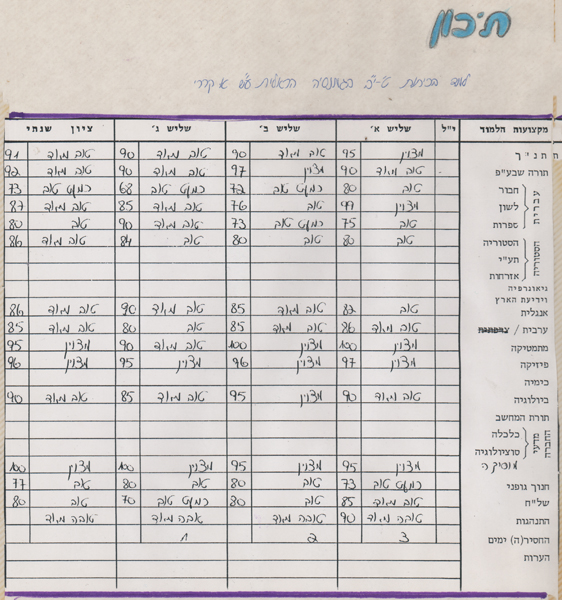 תיכון
מקצועות הלמוד יח"ל שליש א׳ שליש ב׳ שליש ג׳ ציון שנתי
תנ"ך מצוין 95 טוב מאוד 90 טוב מאוד 90 טוב מאוד 91
תורה שבע"פ טוב מאוד 90 מצוין 97 טוב מאוד 90 טוב מאוד 92
עברית
חבור טוב 80 כמעט טוב 72 כמעט טוב 68 כמעט טוב 73
לשון מצוין 99 טוב 76 טוב מאוד 85 טוב מאוד 87
ספרות טוב 75 כמעט טוב 73 טוב מאוד 90 טוב 80
הסטוריה
הסטוריה טוב 80 טוב 80 טוב 84 טוב מאוד 86
תע"י
אזרחות
גיאוגרפיה
וידיעת הארץ
אנגלית טוב 82 טוב מאוד 85 טוב מאוד 90 טוב מאוד 86
ערבית / צרפתית טוב מאוד 86 טוב מאוד 85 טוב 80 טוב מאוד 85
מתמטיקה מצוין 100 מצוין 100 טוב מאוד 90 מצוין 95
פיזיקה מצוין 97 מצוין 96 מצוין 95 מצוין 96
כימיה
ביולוגיה טוב מאוד 90 מצוין 95 טוב מאוד 85 טוב מאוד 90
תורת המחשב
מדעי החברה
כלכלה
סוציולוגיה
מוסיקה מצוין 95 מצוין 95 מצוין 100 מצוין 100
חנוך גופני כמעט טוב 73 טוב 80 טוב 80 טוב 77
של"ח טוב מאוד 85 טוב 80 כמעט טוב 70 טוב 80
התנהגות טובה מאוד 90 טובה מאוד טובה מאוד טובה מאוד
החסיר(ה) ימים 3 2 1
הערות